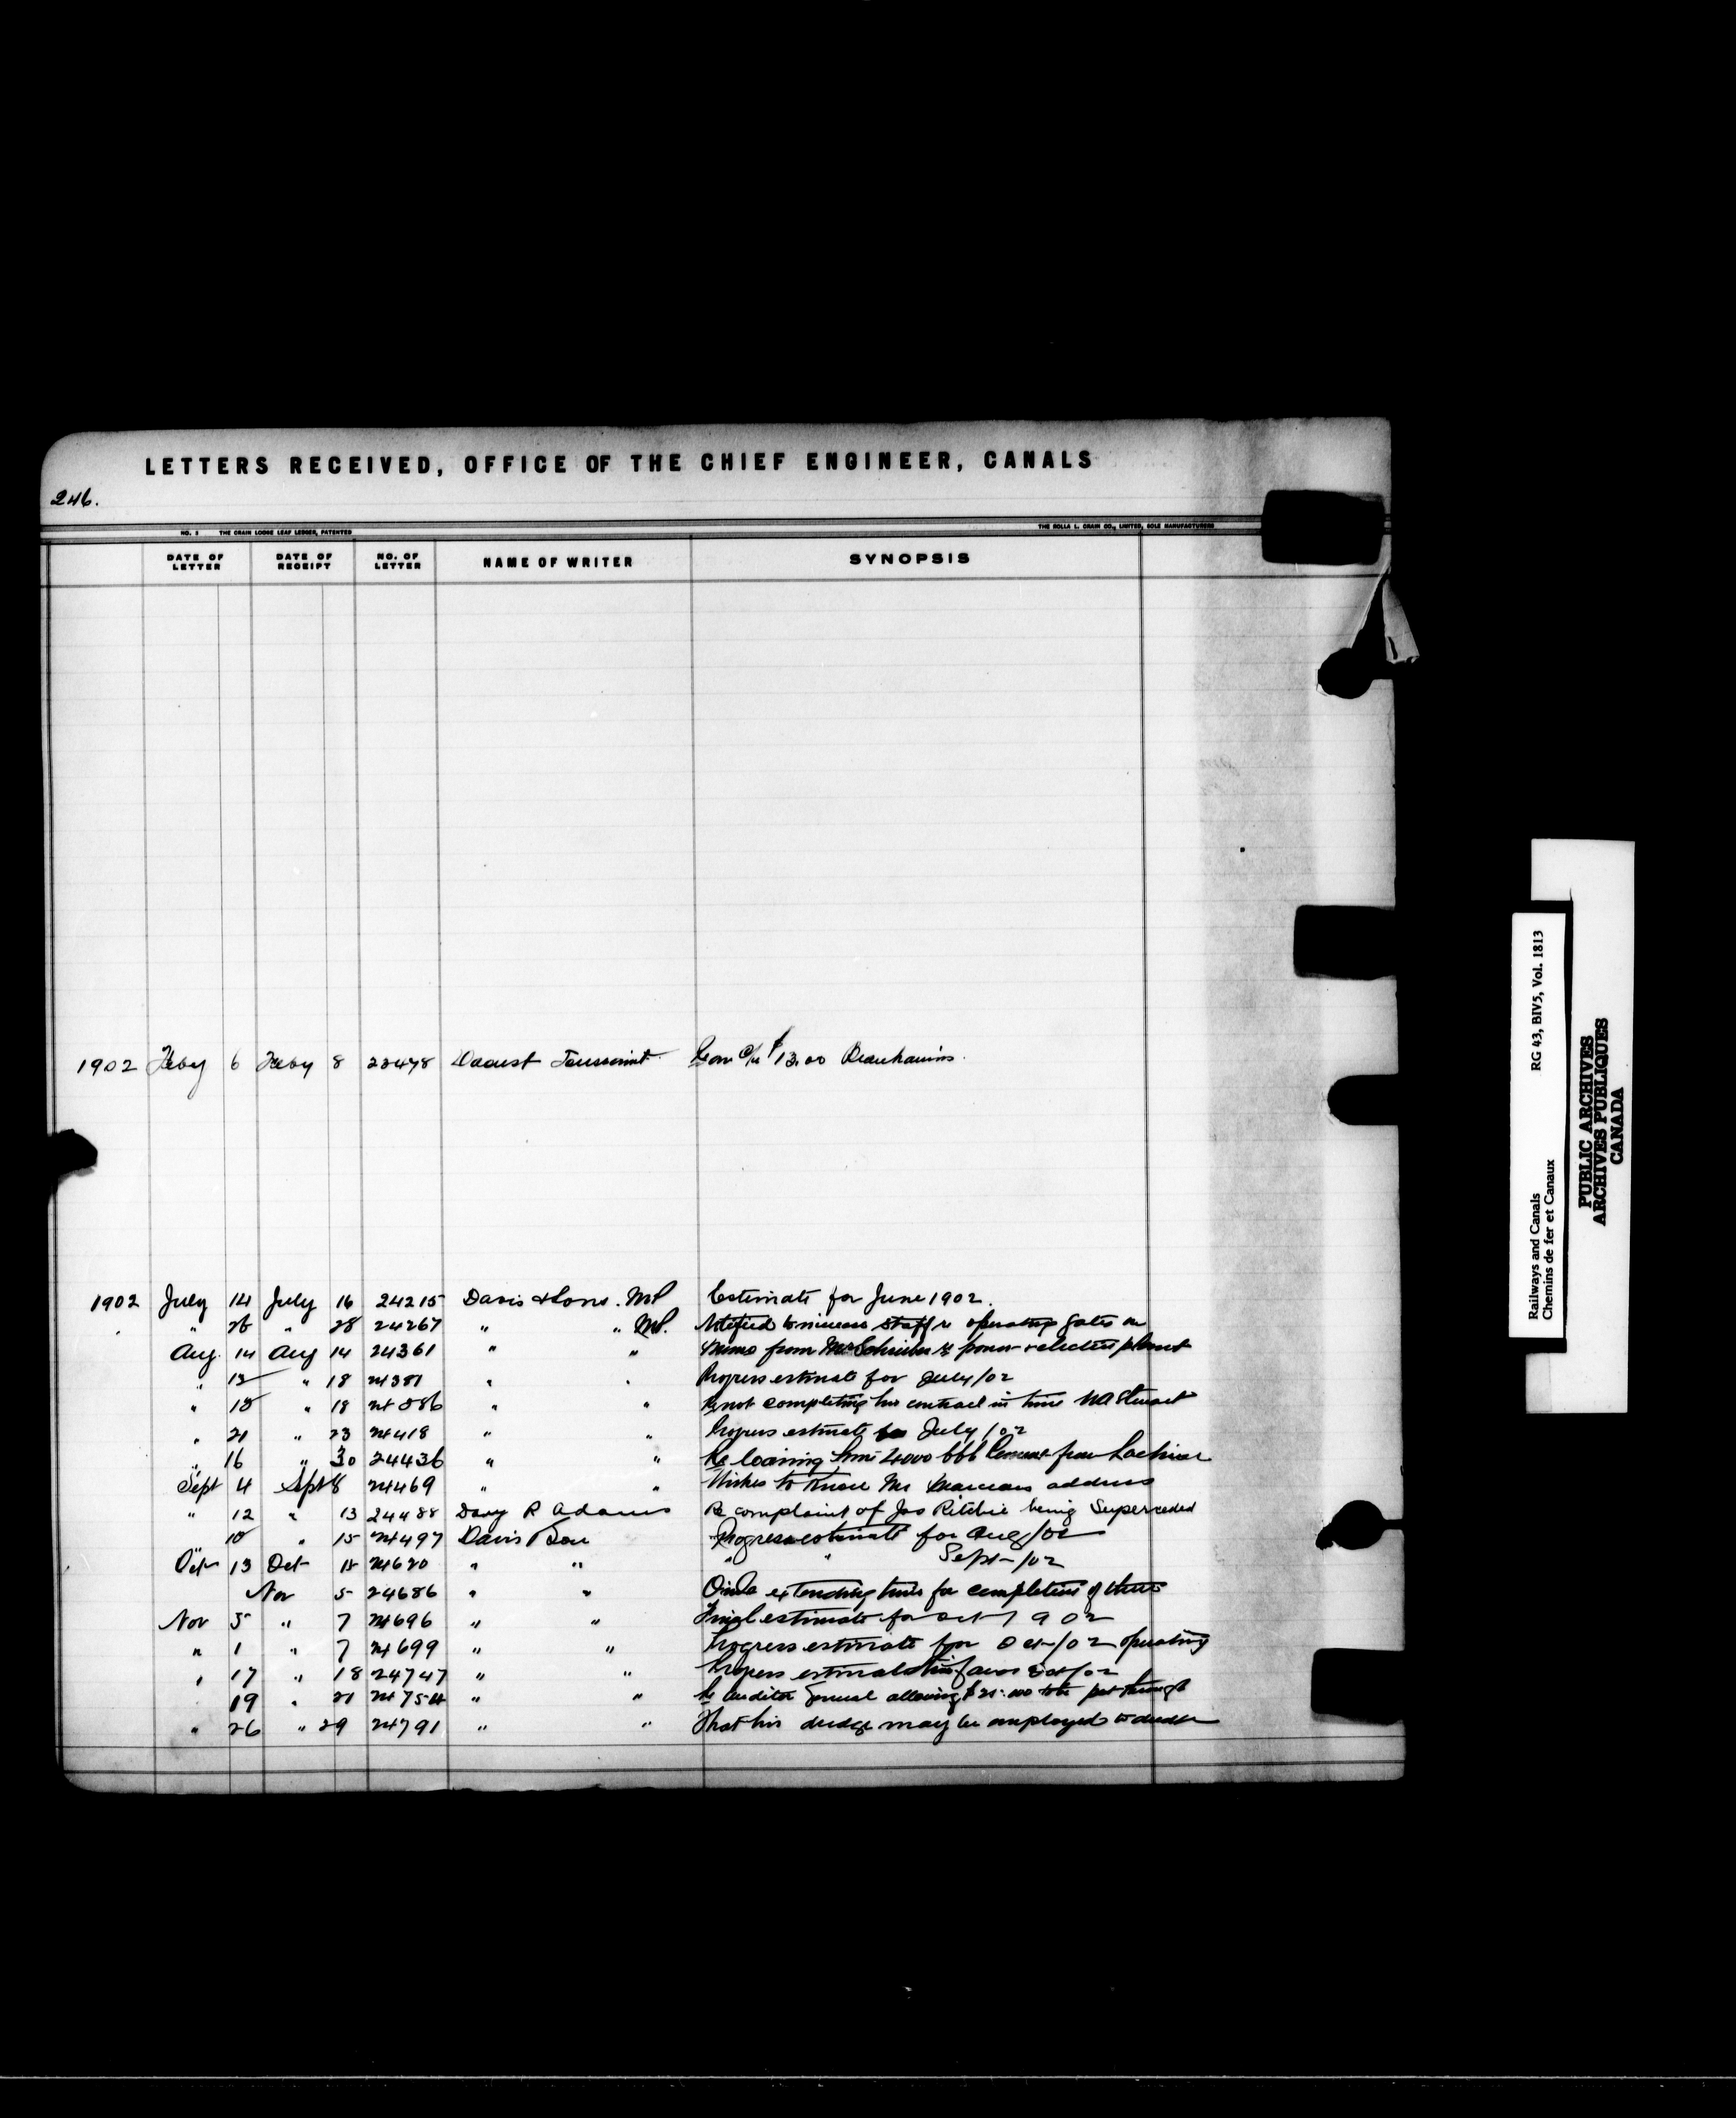 LETTERS RECEIVED, OFFICE OF THE CHIEF ENGINEER, CANALS
246.
NO. 1 THE CRAIN LOOSE LEAF LEDGER, PATENTED THE ROLLA L. CRAIN CO., LIMITED, SOLE MANUFACTURERS
DATE OF LETTER DATE OF RECEIPT NO. OF LETTER NAME OF WRITER SYNOPSIS
1902 Feby 6 Feby 8 23478 Daoust Toussaint $13.00 Beauharnois
1902 July 14 July 16 24215 Davis & Sons. MP Estimate for June 1902.
" 26 " 28 24267 " " MP. Notified to increase staff re operating gates on
Aug. 14 Aug 14 24361 " " Memo from Mr Schreiber re power & electric plant
" " 18 24381 " " Progress estimate for July/02
" 18 " 18 " " Re not completing his contract in time
" 21 " 23 24418 " " Progress estimate for July/02
" 16 " 30 24436 " " Re loaning him 4000 bbls Cement from Lachine
Sept 4 Sept 8 24469 " " Wishes to know Mr Marceaus address
" 12 " 13 24488 Davy R Adams Re complaint of Jas Ritchie being Superceded
" " 15 24497 Davis Progress estimate for Aug/02
Oct 13 Oct 24620 " " " " Sept/02
Nov 5 24686 " " extending time for completion of
Nov 5 " 7 24696 " " Final estimate for Oct 1902
" 1 " 7 24699 " " Progress estimate for Oct/02 operating
" 17 " 18 24747 " " Progress estimate favor Oct/02
19 " 21 24754 " " Re Auditor General allowing to be put through
" 26 " 29 24791 " " That his dredge may be employed to
Railways and Canals RG 43, BIV5, Vol. 1813
Chemins de fer et Canaux
PUBLIC ARCHIVES
ARCHIVES PUBLIQUES
CANADA